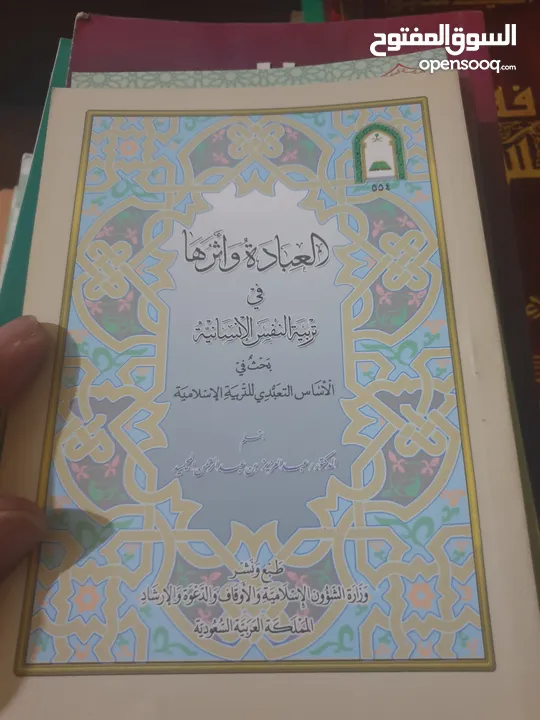 السوق المفتوح
opensooq.com
٥٥٤
العبادة وأثرها
في
تربية النفس الإنسانية
بحث في
الأساس التعبدي للتربية الإسلامية
بقلم
الدكتور / عبد العزيز بن عبد الرحمن
طبع ونشر
وزارة الشؤون الإسلامية والأوقاف والدعوة والإرشاد
المملكة العربية السعودية